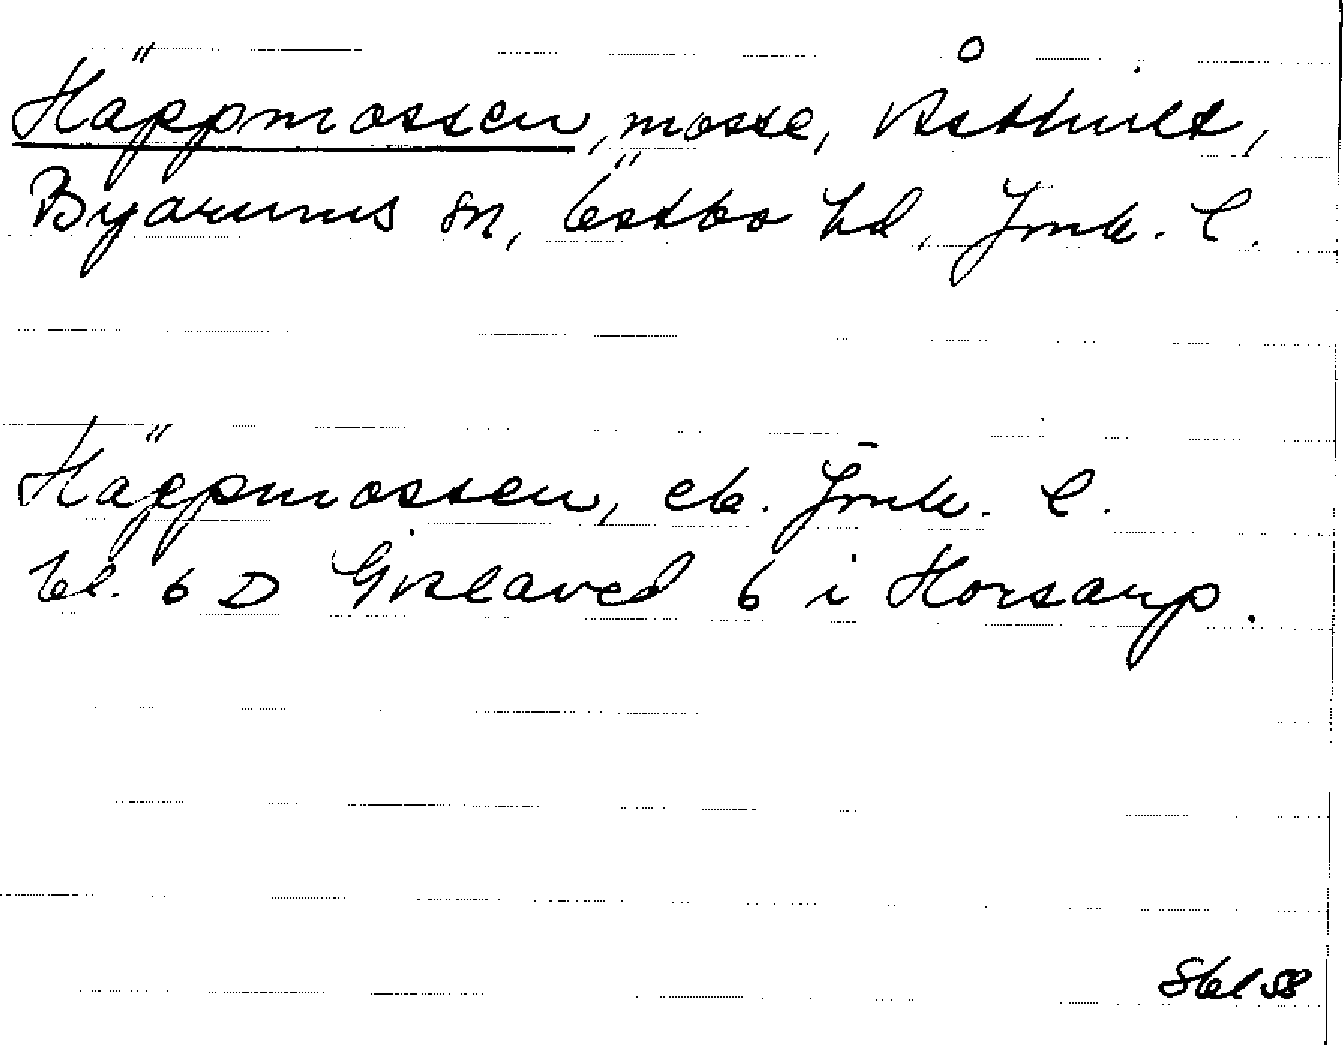 Häppmossen, mosse,
Byarums sn, Östbo hd, Jönk. l.
Häppmossen, ek. Jönk. l.
bl. 6 D Gislaved 6 i Horsarp.